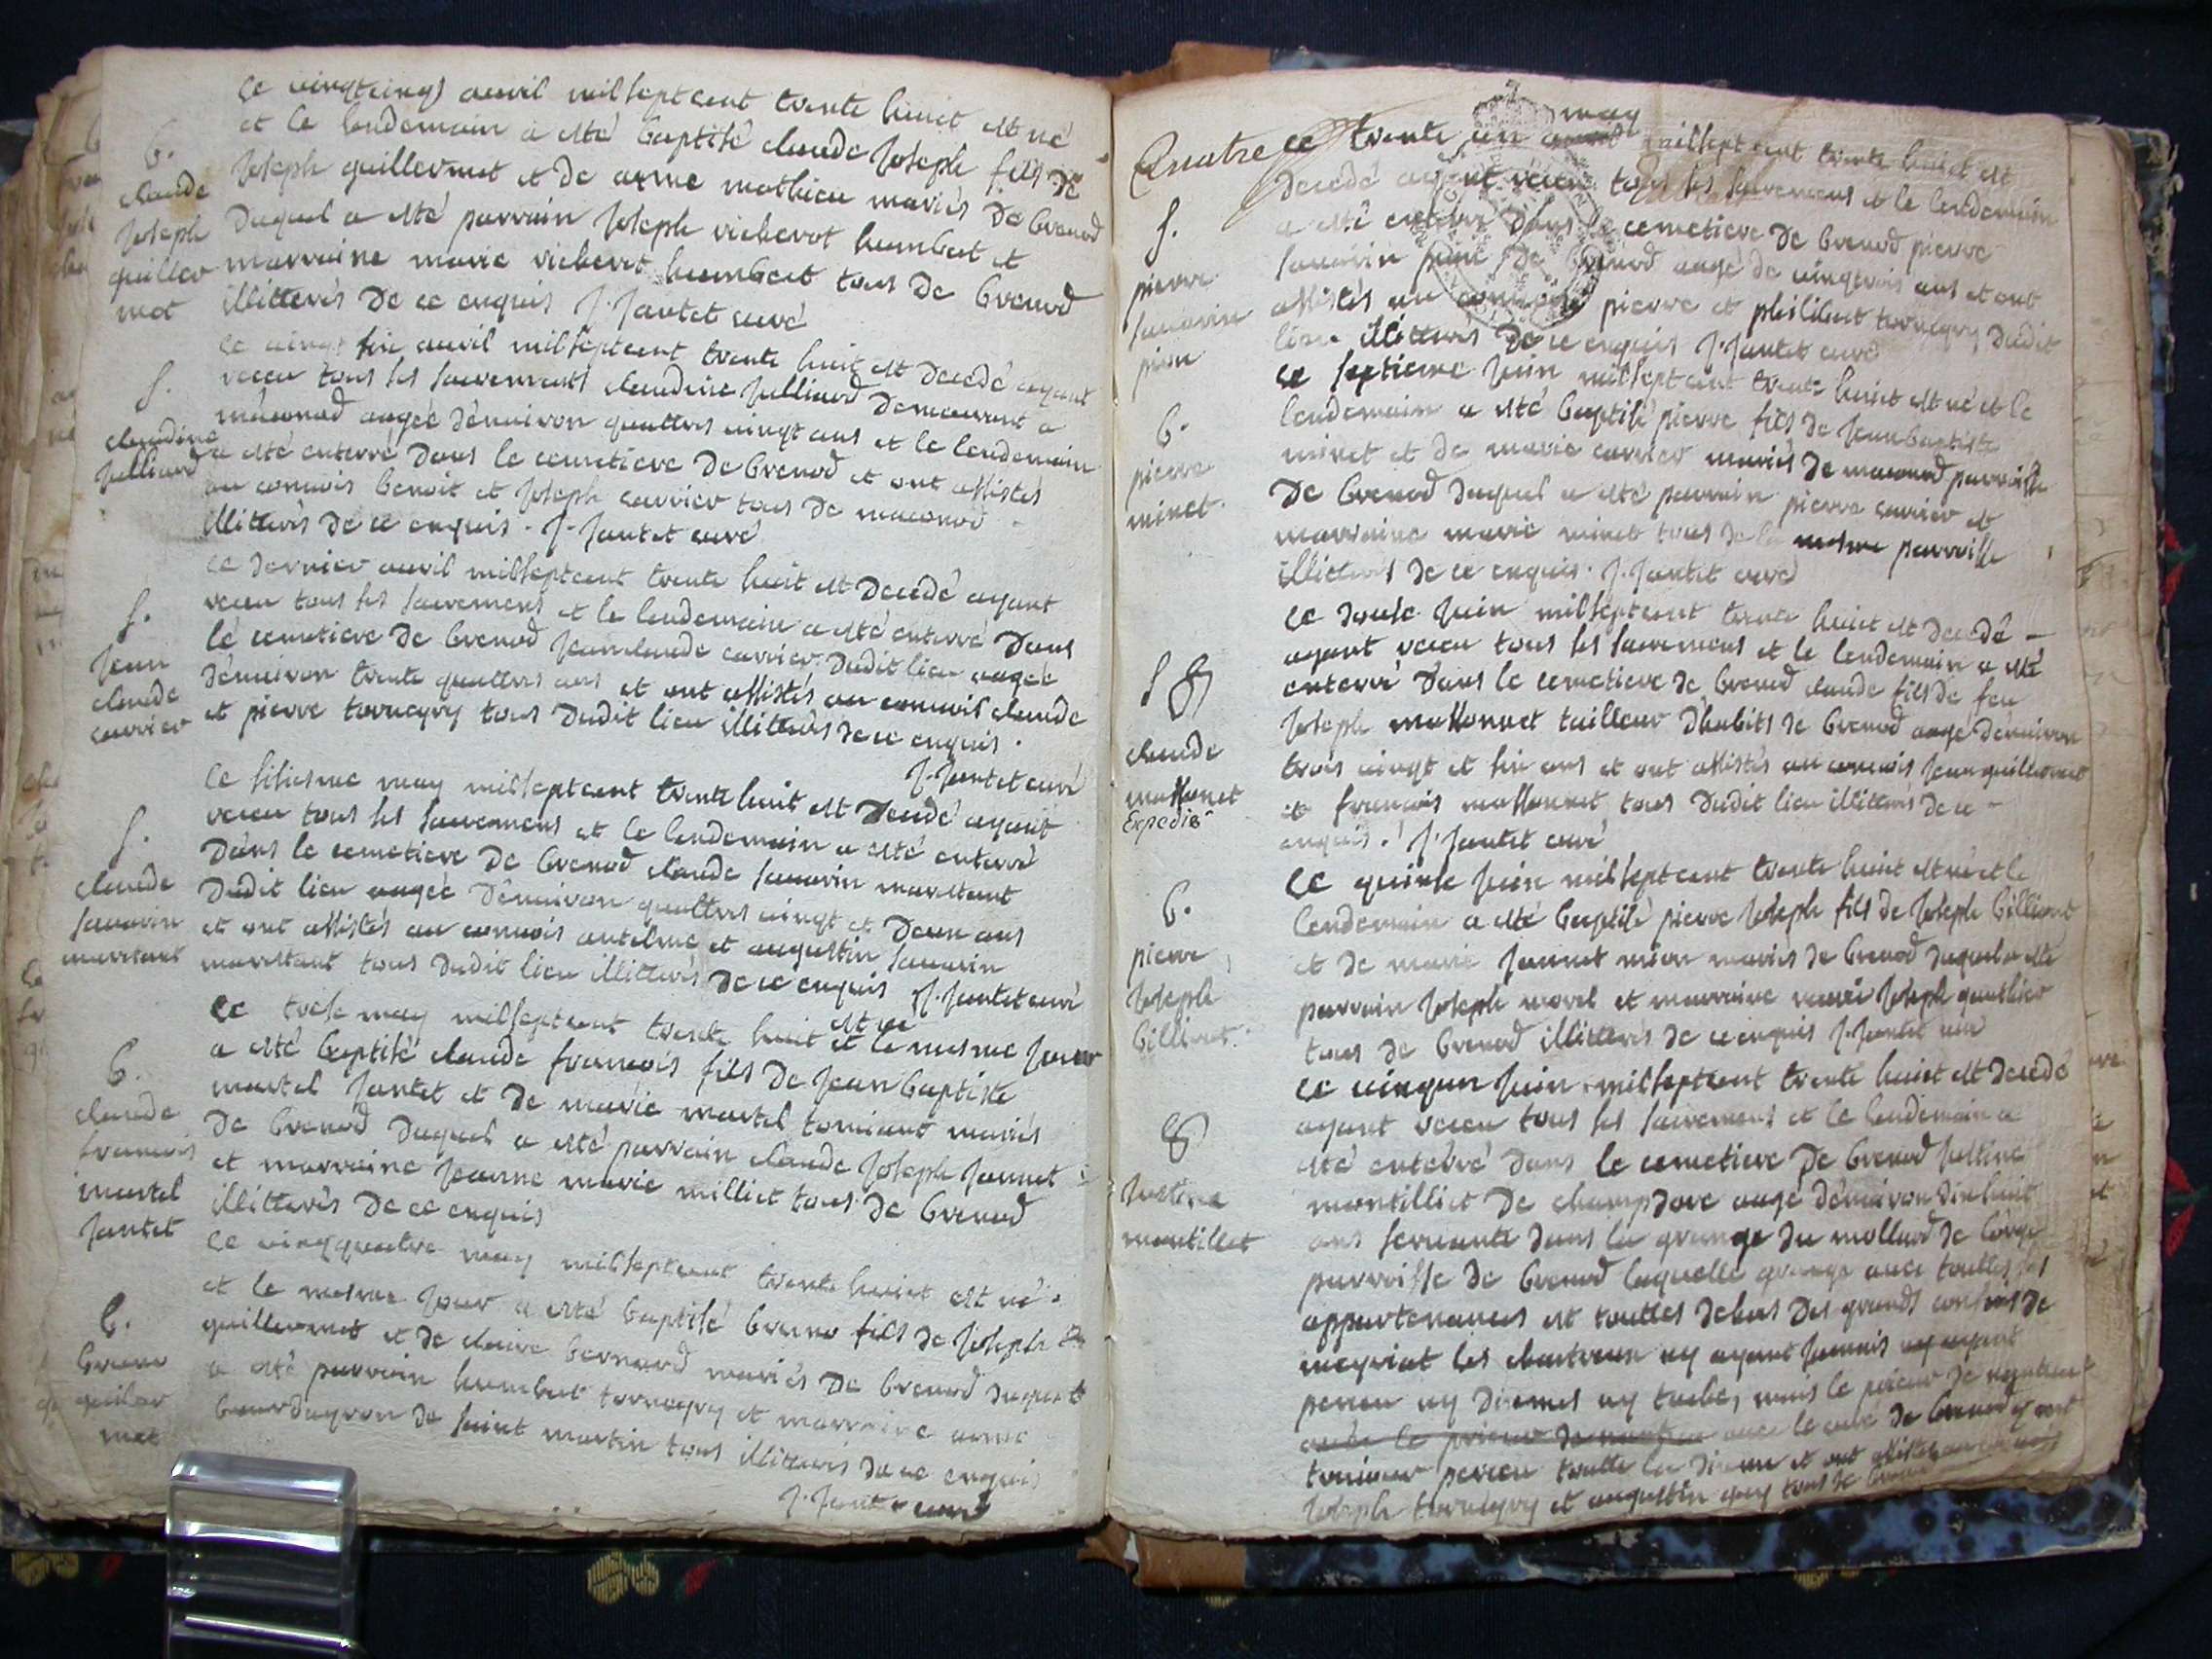 ce vingtcinq avril milseptcent trente huict est né
et le lendemain a esté baptisé claude Joseph fils de
Joseph guillermet et de anne mathieu mariés de brenod
duquel a esté parrain Joseph richerot humbert et
marraine marie richerot humbert tous de brenod
illitterés de ce enquis J. Jantet curé
b.
claude
Joseph
guiller
met
ce vingt six avril milseptcent trente huit est decedé ayant
receu tous les sacrements claudine Julliard demeurant a
maconod augée d'enuiron quattres vingt ans et le lendemain
a esté enterré dans le cemetiere de brenod et ont assistés
au convois benoit et Joseph carrier tous de maconod
illitterés de ce enquis. J. Jantet curé
f.
claudine
Julliard
ce dernier avril milseptcent trente huit est decedé ayant
receu tous les sacremens et le lendemain a esté enterré dans
le cemetiere de brenod Jean claude carrier dudit lieu augée
d'enuiron trente quattres ans et ont assistés au convois claude
et pierre torneyry tous dudit lieu illitterés de ce enquis.
J. Jantet curé
f.
Jean
claude
carrier
ce sisiesme may milseptcent trente huit est decedé ayant
receu tous les sacremens et le lendemain a esté enterré
dans le cemetiere de brenod claude sauarin marestant
dudit lieu augée d'enuiron quattres vingt et deux ans
et ont assistés au convois antelme et augustin sauarin
marestant tous dudit lieu illitterés de ce enquis J. Jantet curé
f.
claude
sauarin
marestant
ce trese may milseptcent trente huit est né et le mesme Jour
a esté baptisé claude francois fils de Jean baptiste
martel Jantet et de marie martel mariés
de brenod duquel a esté parrain claude Joseph Jannet
et marraine Jeanne marie milliet tous de brenod
illitterés de ce enquis
b.
claude
francois
martel
Jantet
ce vingtquatre may milseptcent trente huict est né
et le mesme Jour a esté baptisé bruno fils de Joseph
guillermet et de claire bernard mariés de brenod duquel
a esté parrain humbert torneyry et marraine anne
de saint martin tous illitterés de ce enquis
J. Jantet curé
b.
bruno
guiler
met
Quatre
ce trente un may milsept cent trente huict est
decedé ayant receu tous les sacremens et le lendemain
a esté enterré dans le cemetiere de brenod pierre
sauarin pion de brenod augé de vingtrois ans et ont
assistés au convois pierre et philibert torneyry dudit
lieu illitterés de ce enquis J. Jantet curé
f.
pierre
sauarin
pion
ce septieme Juin milseptcent trente huict est né et le
lendemain a esté baptisé pierre fils de Jean baptiste
minet et de marie carrier mariés de maconod parroisse
de brenod duquel a esté parrain pierre carrier et
marraine marie minet tous de la mesme parroisse
illitterés de ce enquis. J. Jantet curé
b.
pierre
minet.
ce douse Juin milseptcent trente huict est decedé
ayant receu tous les sacremens et le lendemain a esté
enterré dans le cemetiere de brenod claude fils de feu
Joseph massonnet tailleur d'habits de brenod auge d'enuiron
trois vingt et six ans et ont assistés au convois Jean guillermet
et francois massonnet tous dudit lieu illitterés de ce
enquis. J. Jantet curé
f
claude
massonet
Expedié
ce quinse Juin milseptcent trente huict est né et le
lendemain a esté baptisé pierre Joseph fils de Joseph billient
et de marie Jannet mion mariés de brenod duquel a esté
parrain Joseph morel et marraine marie Joseph gauthier
tous de brenod illitterés de ce enquis J. Jantet curé
b.
pierre
Joseph
billient.
ce vingun Juin milseptcent trente huict est decedé
ayant receu tous les sacremens et le lendemain a
esté enterré dans le cemetiere de brenod Justine
montilliet de champdore augé d'enuiron dixhuit
ans seruante dans la grange du mollard de lorge
parroisse de brenod laquelle grange auec touttes ses
appartenances est touttes dehors des grands confins de
meyriat les chartreux ny ayant Jamais ny ayant
perceu ny diemes ny taches, mais le prieur de
auec le curé de brenod y ont
tousiour perceu toutte la dieme et ont assistés au convois
Joseph torneyry et augustin guy tous de brenod
Justine
montillet